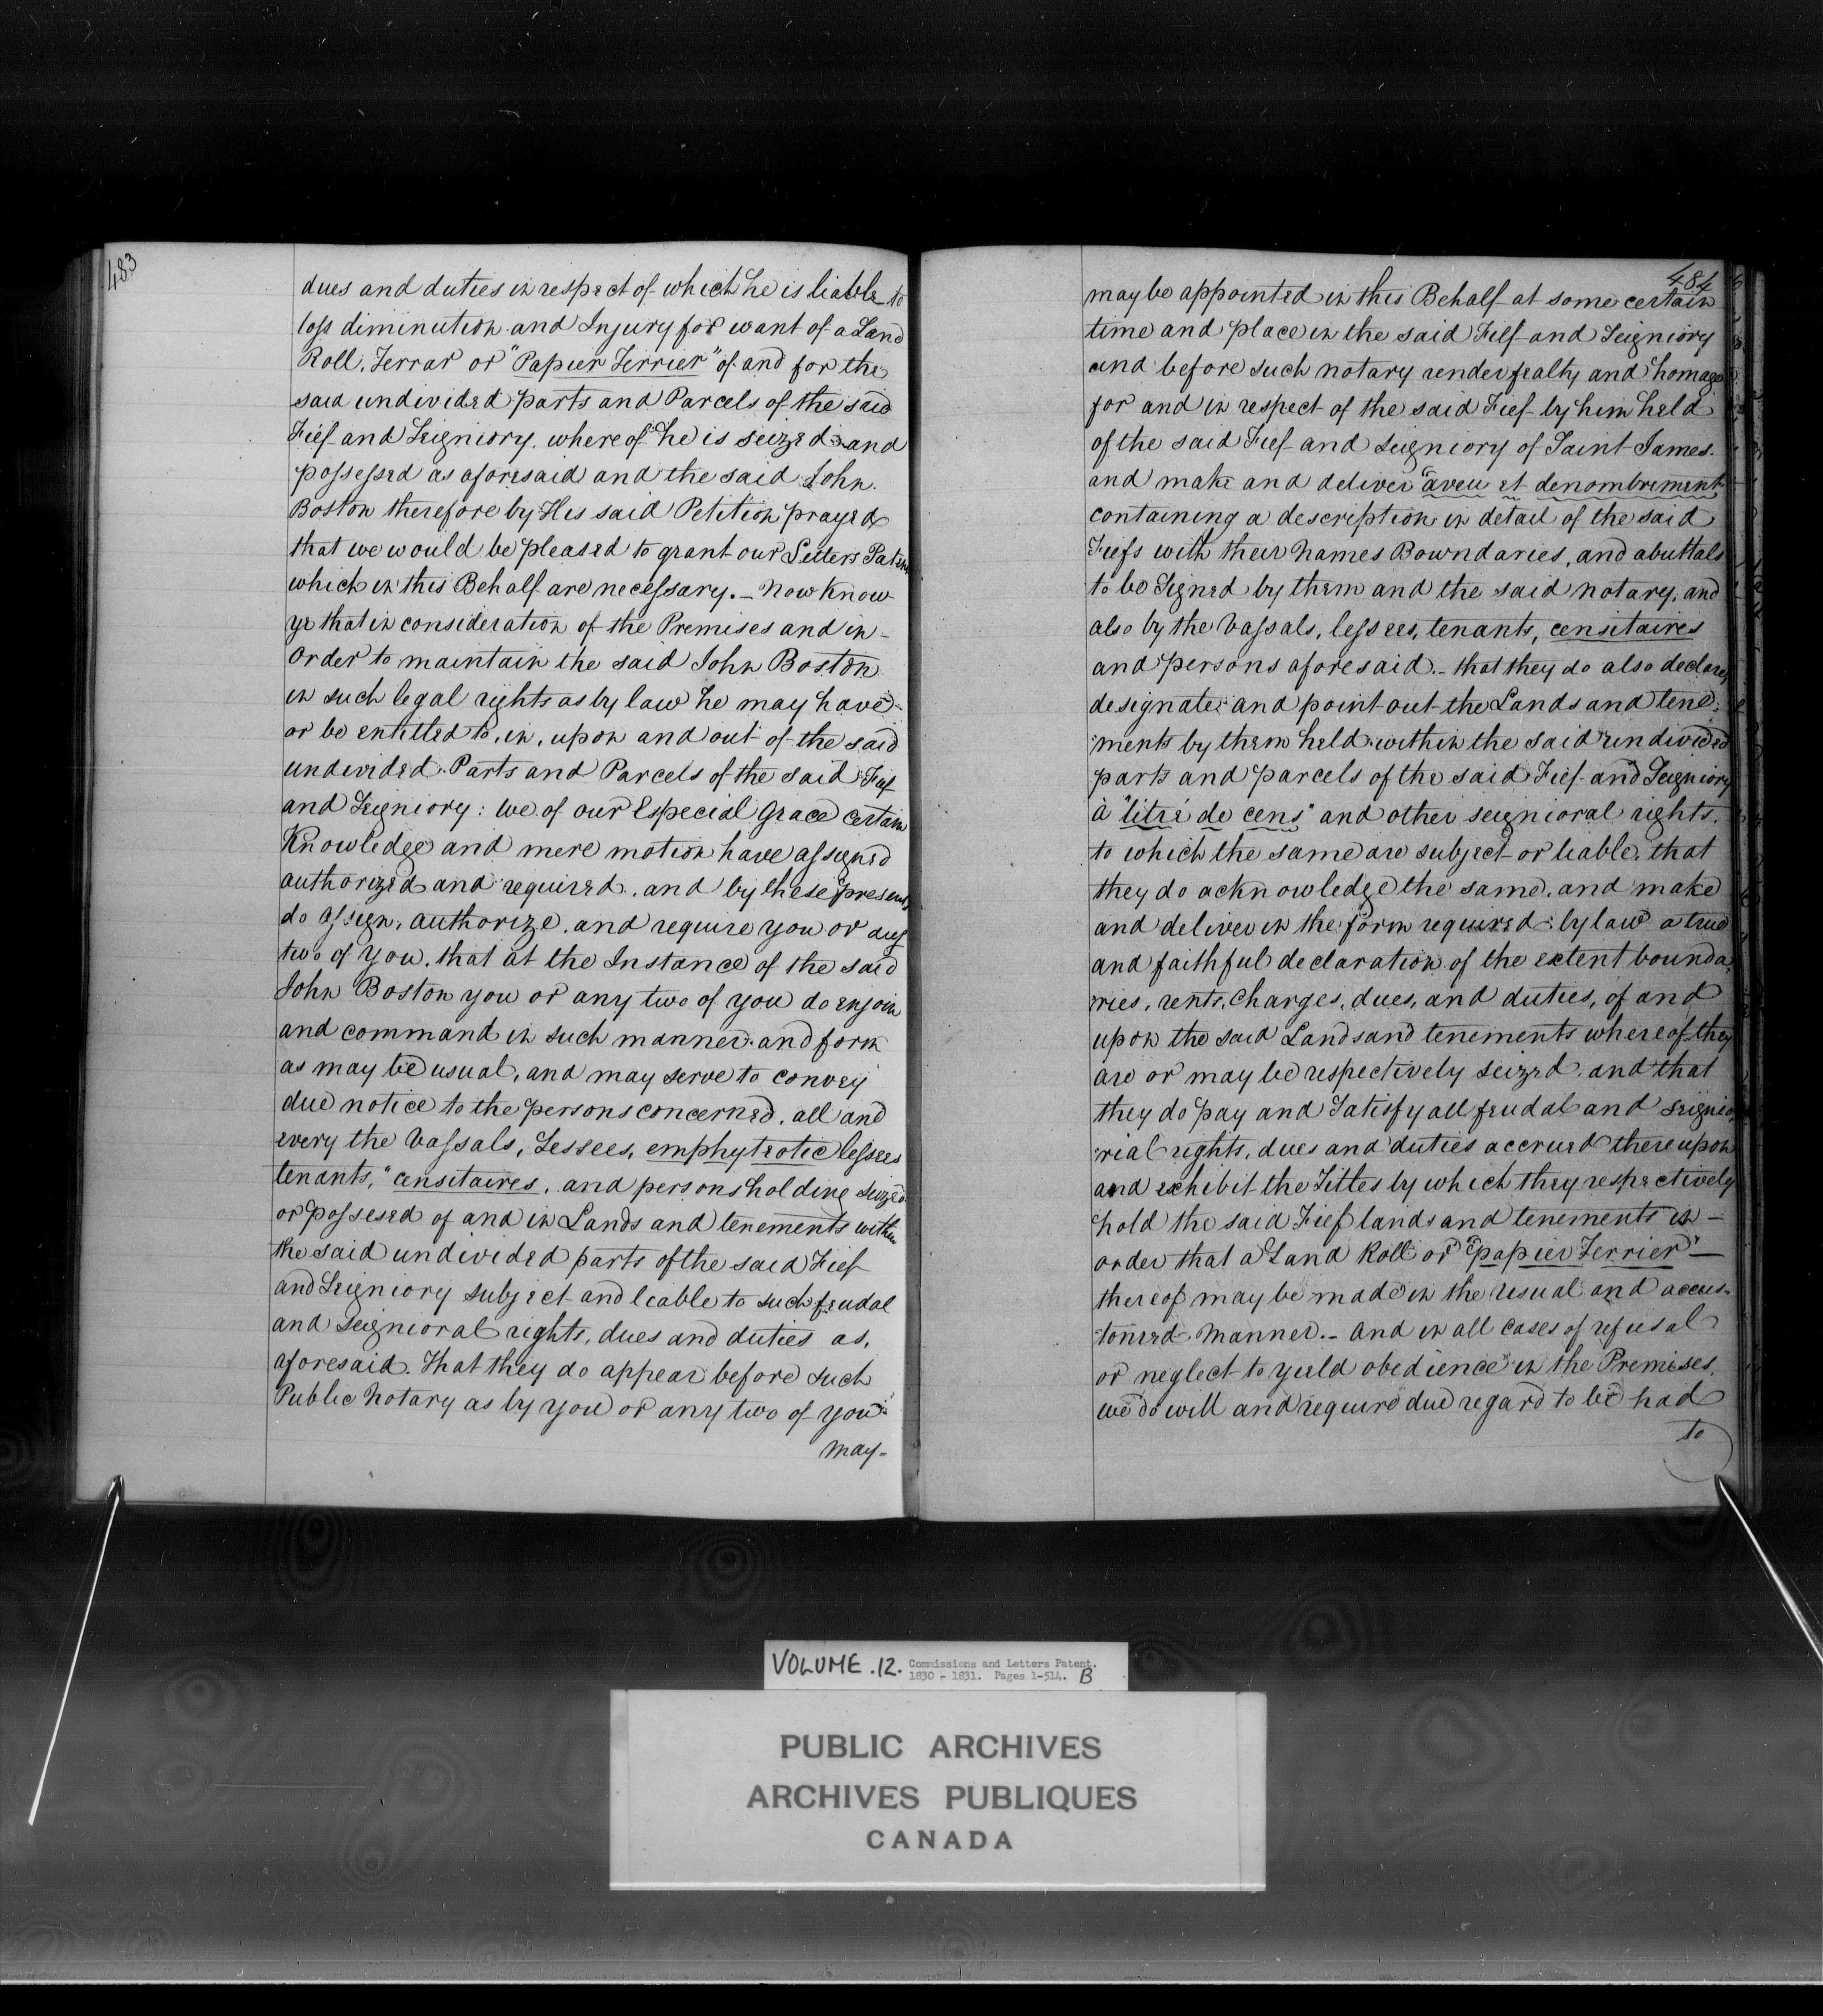 483
dues and duties in respect of which he is liable to
loss diminution and Injury for want of a Land
Roll, Terrar or "Papier Terrier" of and for the
said undivided parts and Parcels of the said
Fief and Seigniory. whereof he is seized and
possessed as aforesaid and the said John.
Boston therefore by His said Petition prayed
that we would be pleased to grant our Letters Patent
which in this Behalf are necessary. - Now Know
ye that in consideration of the Premises and in -
Order to maintain the said John Boston
in such legal rights as by law he may have
or be entitled to, in, upon and out of the said
undivided Parts and Parcels of the said Fief
and Seigniory: we of our Especial Grace certain
Knowledge and mere motion have assigned
authorized and required, and by these presents
do assign, authorize, and require you or any
two of you, that at the Instance of the said
John Boston you or any two of you do enjoin
and command in such manner and form
as may be usual, and may serve to convey
due notice to the persons concerned, all and
every the Vassals, Lessees, emphyteotic lessees
tenants, "censitaires, and persons holding seized
or possesed of and in Lands and tenements within
the said undivided parts of the said Fief
and Seigniory subject and liable to such feudal
and seignioral rights, dues and duties as,
aforesaid. That they do appear before such
Public Notary as by you or any two of you
may-
484
may be appointed in this Behalf at some certain
time and place in the said Fief and Seigniory
and before such notary render fealty and homage
for and in respect of the said Fief by him held
of the said Fief and Seigniory of Saint James.
and make and deliver "aveu et denombrement
containing a description in detail of the said
Fiefs with their Names Bowndaries, and abuttals
to be Signed by them and the said notary, and
also by the Vassals, lessees, tenants, censitaires
and persons aforesaid. - that they do also declare,
designate and point out the Lands and tene-
ments by them held within the said undivided
parts and parcels of the said Fief and Seigniory
à "litre de cens" and other seignioral rights.
to which the same are subject or liable, that
they do acknowledge the same, and make
and deliver in the form required by law a true
and faithful declaration of the extent bounda-
ries, rents, Charges, dues, and duties, of and
upon the said Lands and tenements whereof they
are or may be respectively seized, and that
they do pay and Satisfy all feudal and seignio-
rial rights, dues and duties accrued thereupon
and exhibit the Tittles by which they respectively
hold the said Fief lands and tenements in -
order that a Land Roll or "papier Terrier" -
thereof may be made in the usual and accus-
tomed Manner. - And in all cases of refusal
or neglect to yield obedience in the Premises,
we do will and require due regard to be had
to
VOLUME .12. Commissions and Letters Patent.
1830 - 1831. Pages 1-514. B
PUBLIC ARCHIVES
ARCHIVES PUBLIQUES
CANADA